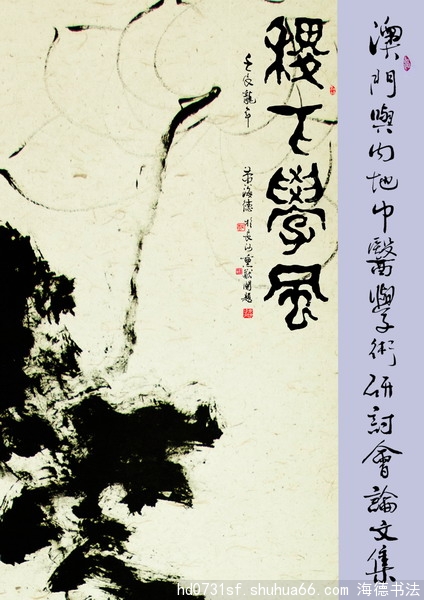 澳門與内地中醫學術研討會論文集
稷下學風
壬辰龍年
海德於長沙
hd0731sf.shuhua66.com 海德书法